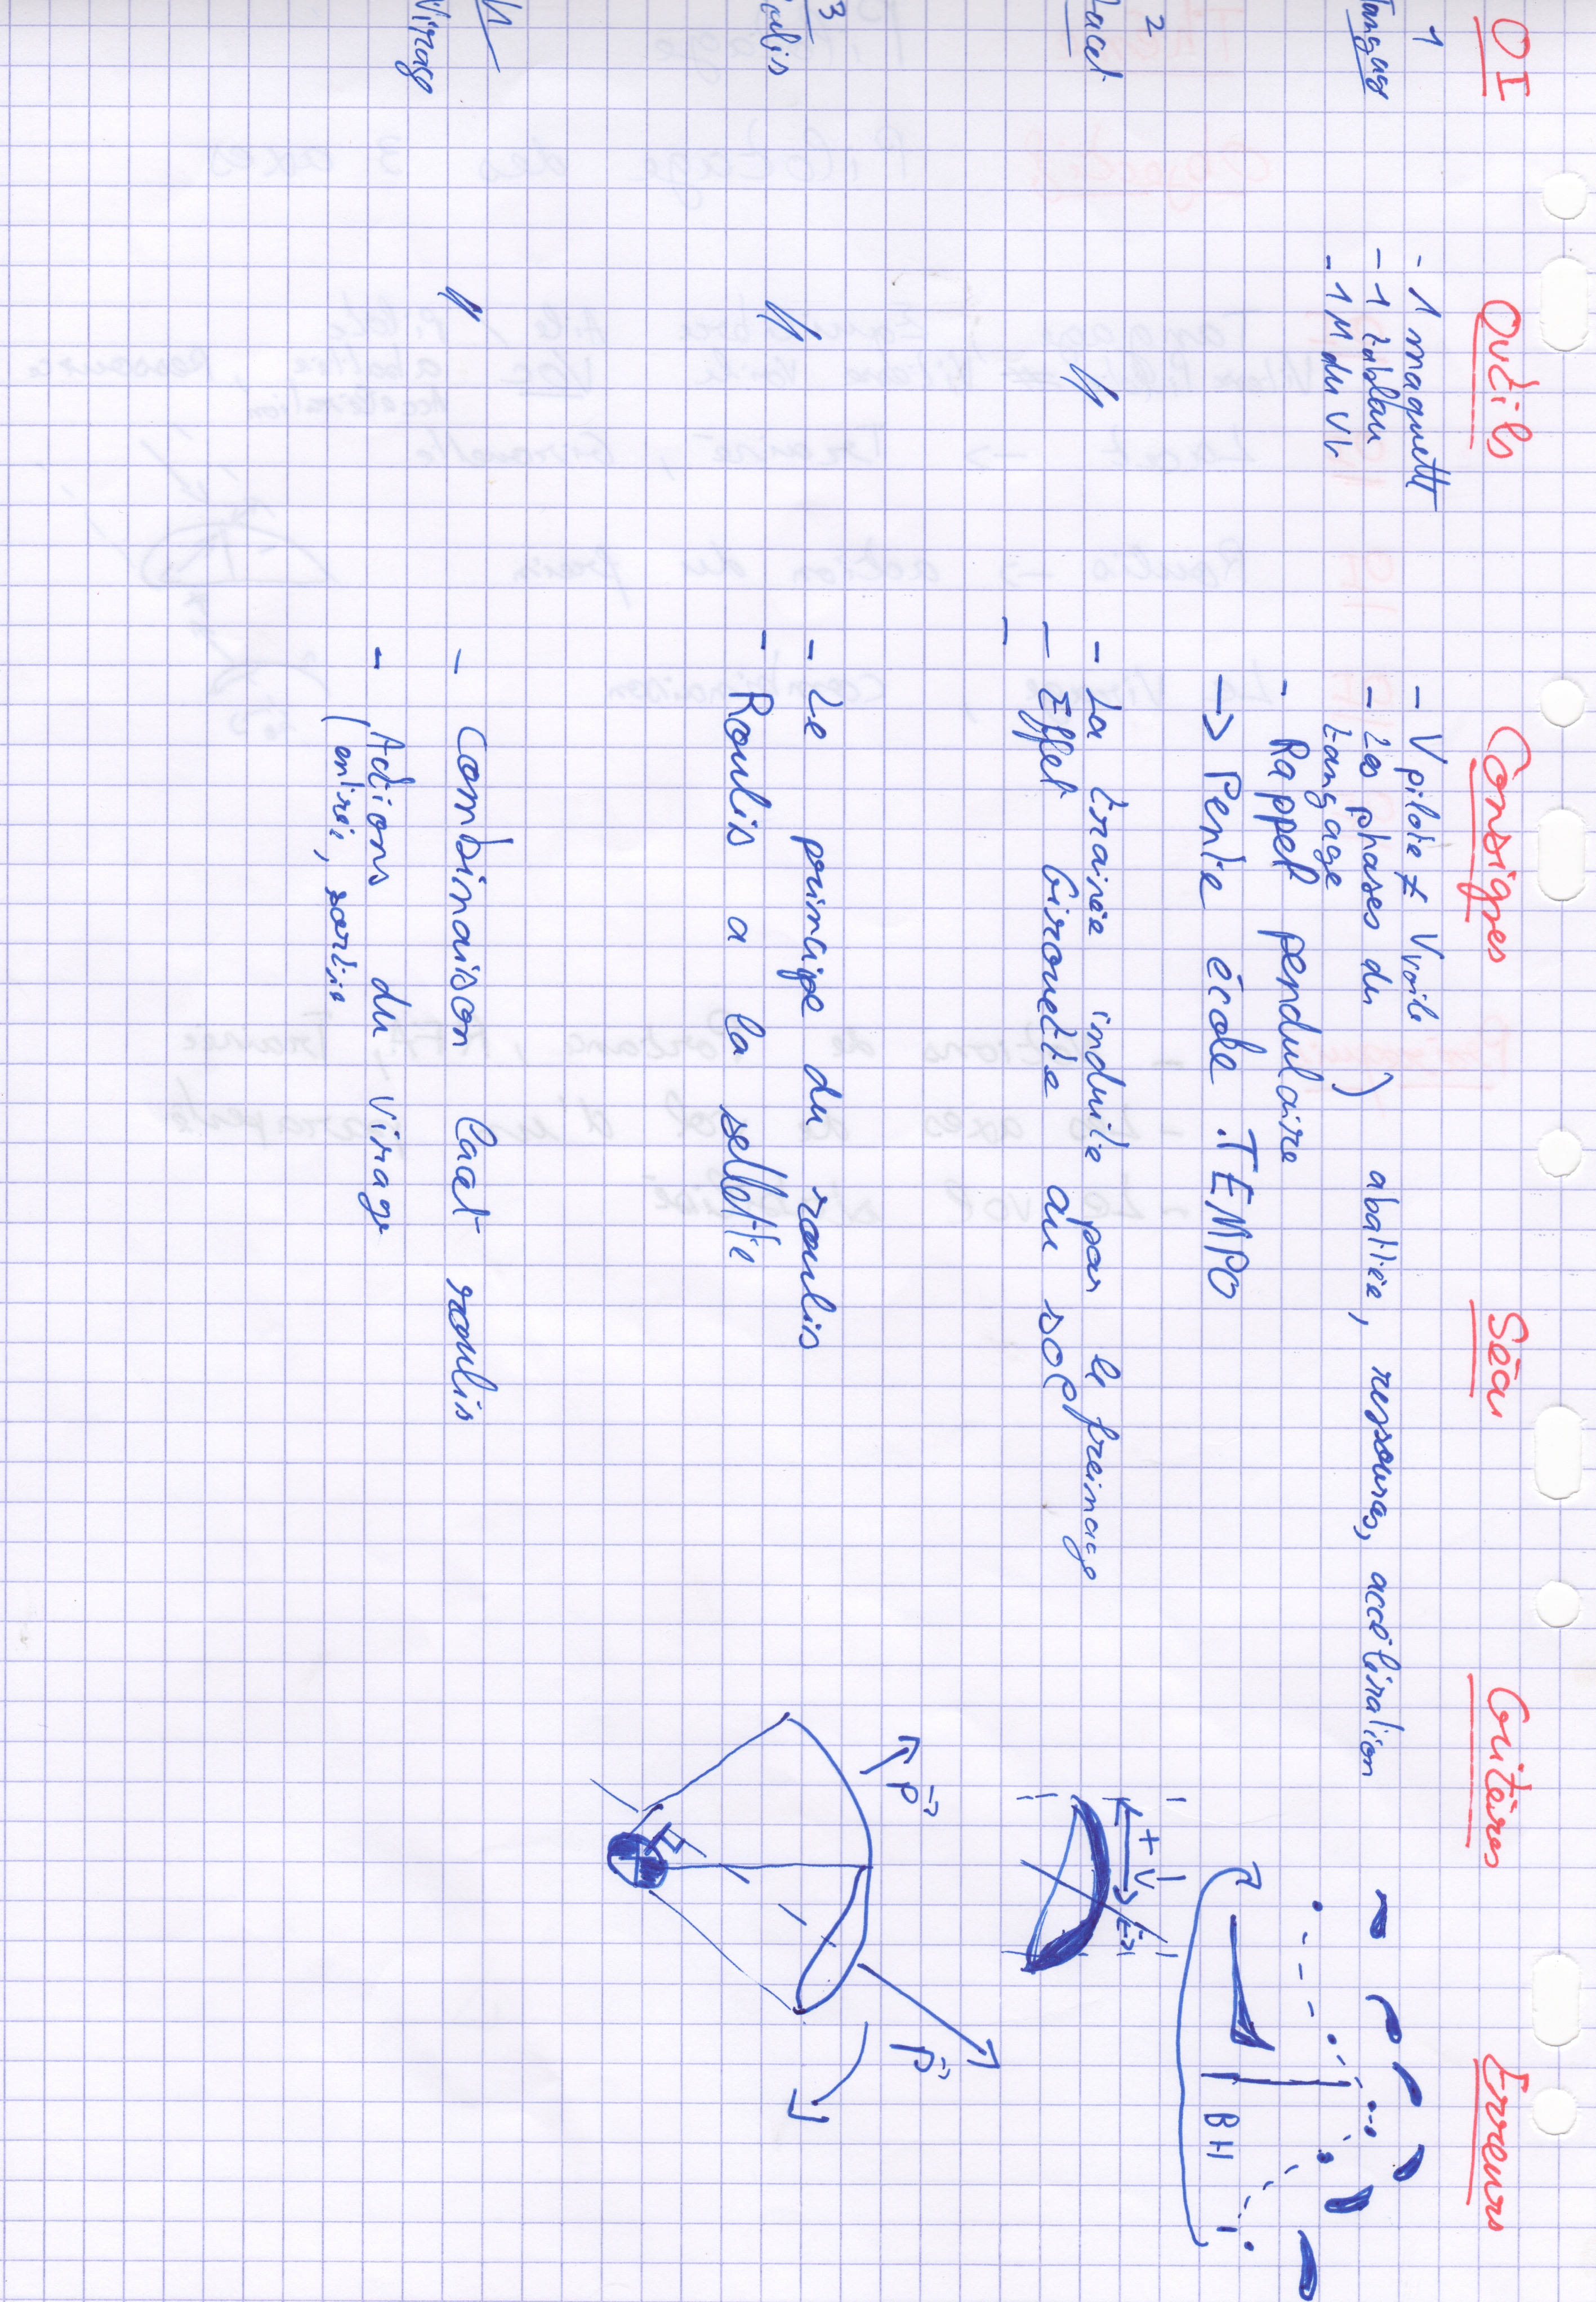 OI Outils Consignes Sécu Critères Erreurs
1
Tangage
- 1 maquette
- 1 tableau
- 1 M du VL
- V pilote ≠ V voile
- Les phases du tangage ) abattée, ressource, accélération
- Rappel pendulaire
-> Pente école . TEMPO
BH
2
Lacet
//
- La trainée induite par le freinage
- Effet Girouette au sol
-
+ V -
3
Roulis
//
- Le principe du roulis
- Roulis a la sellette
P
P
4
Virage
//
- Combinaison lacet roulis
- Actions du virage
(entrée, sortie